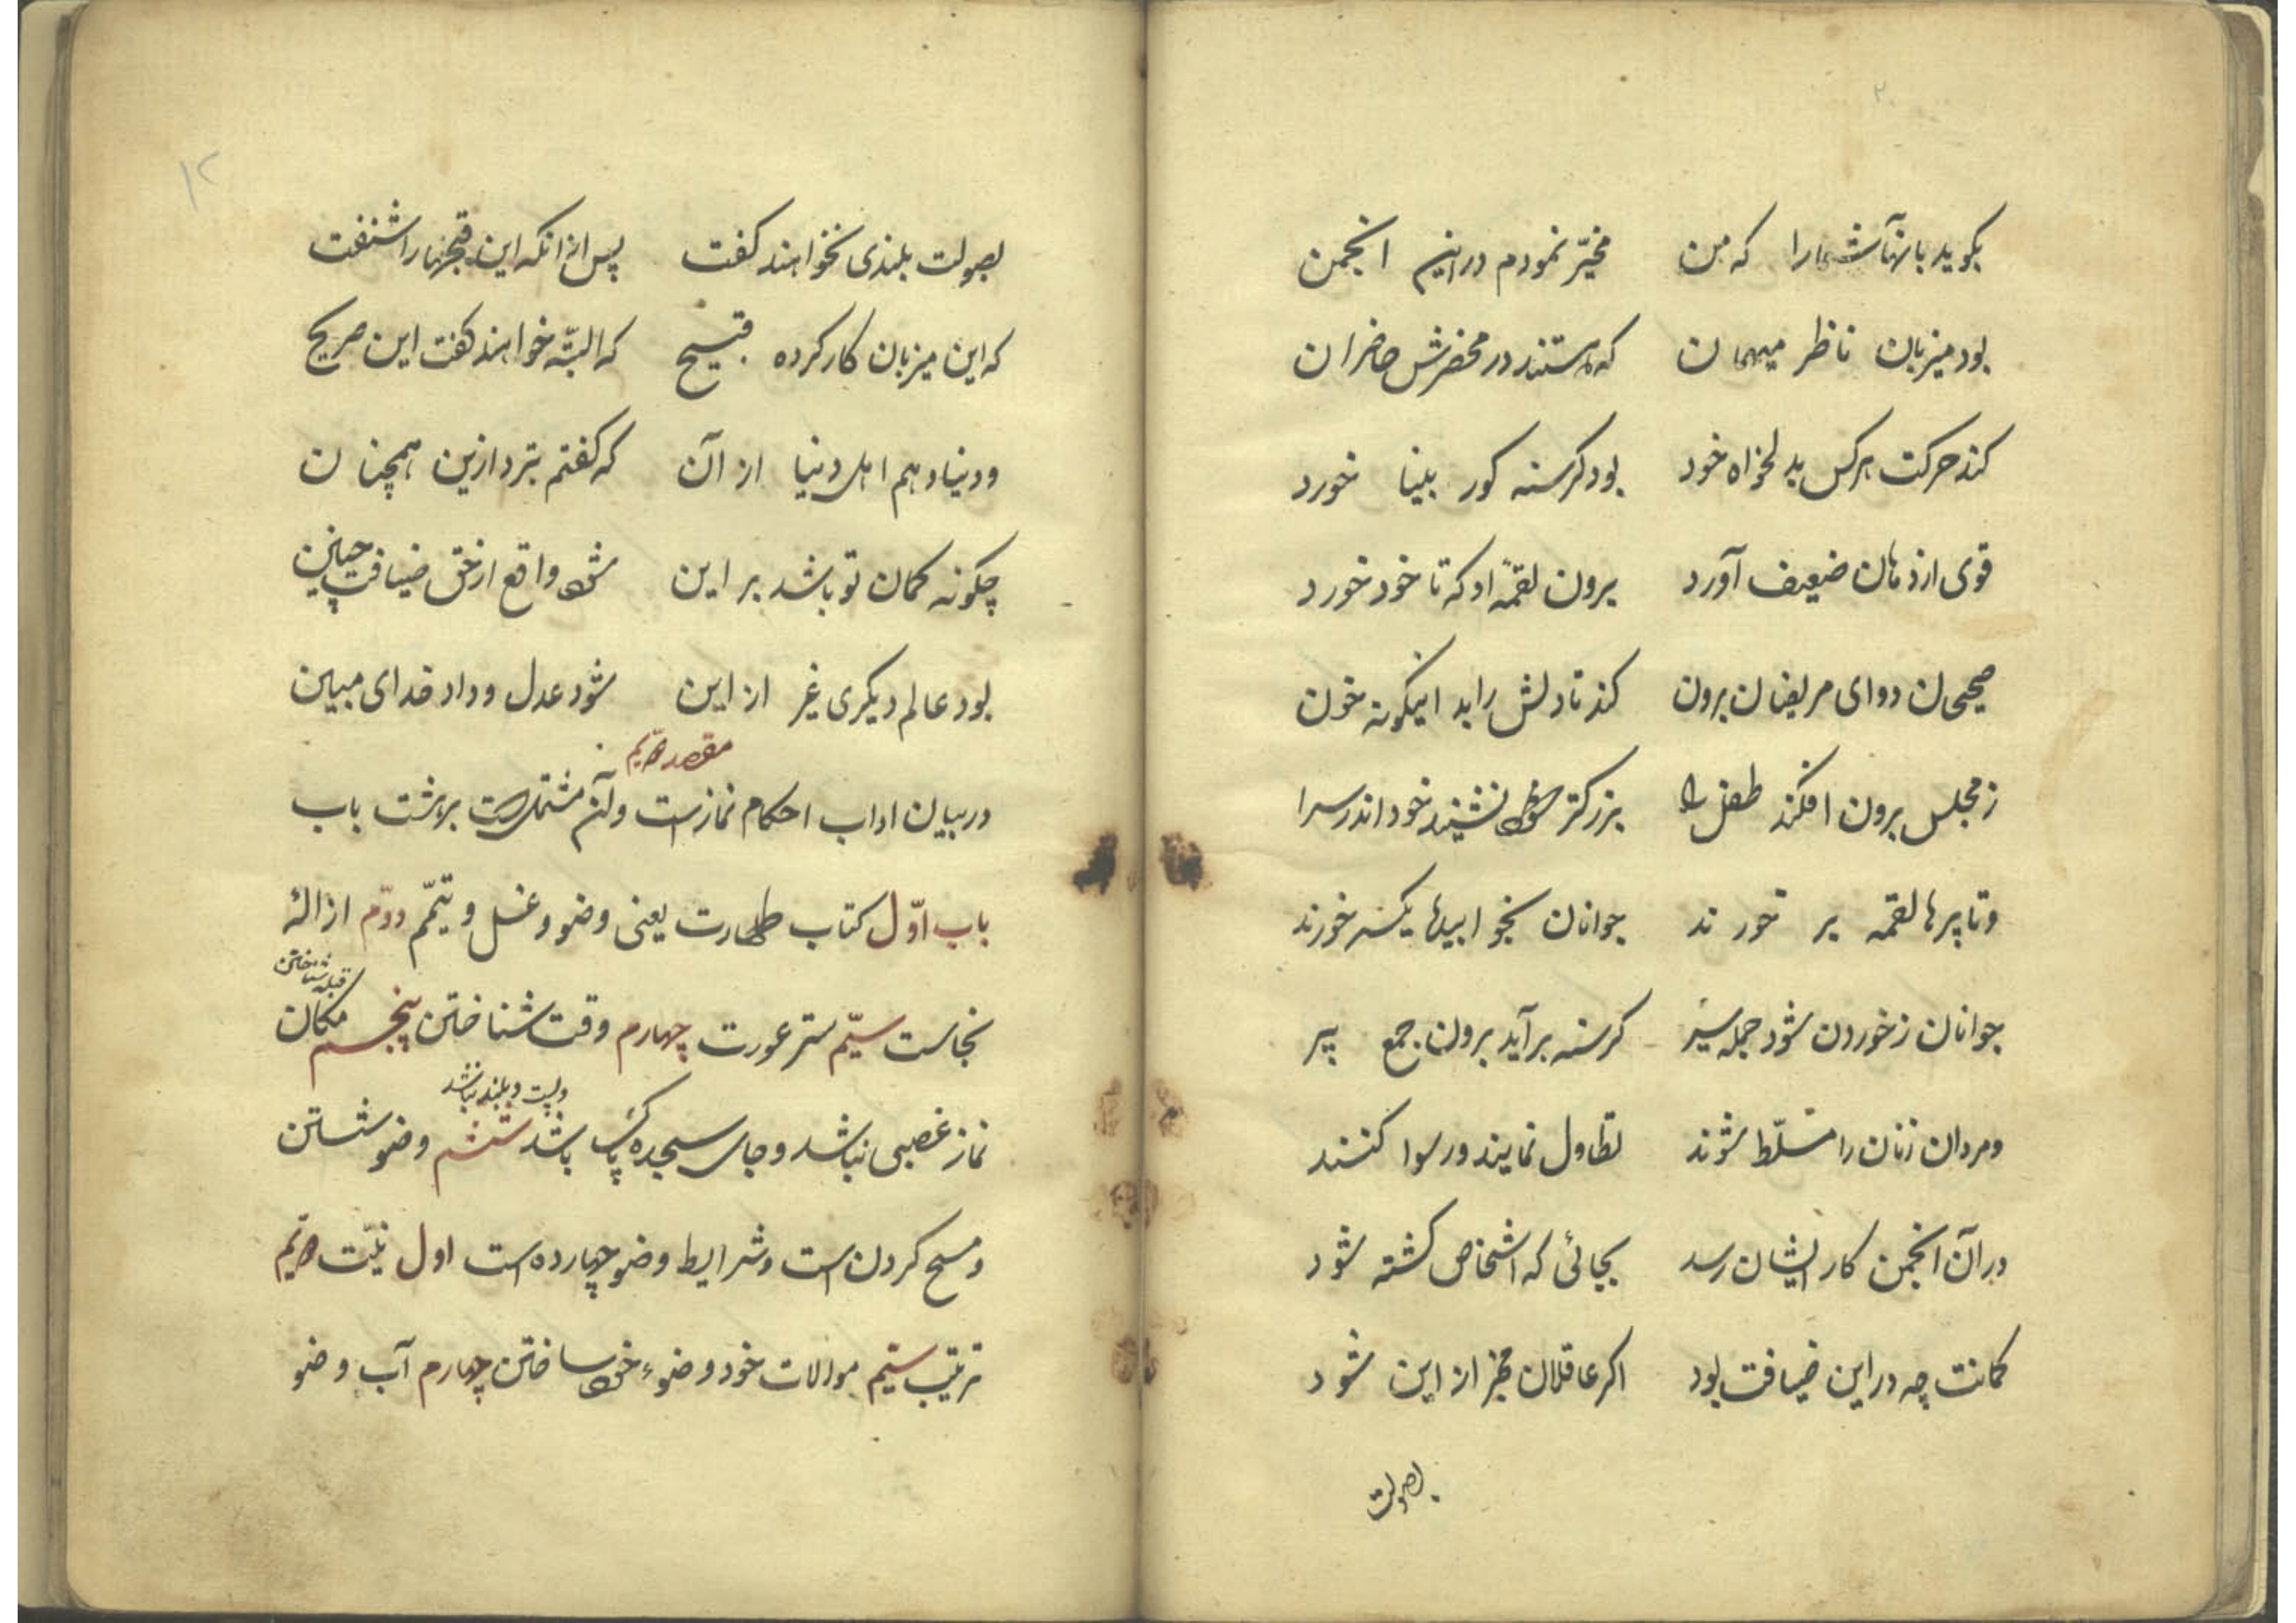 بکوید بانها شما را که من مخیّر نمودم در این انجمن
بود میزبان ناظر میهمان که هستند در محضرش حاضران
کند حرکت هرکس بدلخواه خود بود کرسنه کور بینا خورد
قوی از دهان ضعیف آورد برون لقمهٔ او که تا خود خورد
صحیحان دوای مریضان برون کند تا دلش را بد اینکونه خون
ز مجلس برون افکند طفل را بزرکتر نشیند خود اندر سرا
و تا پیرها لقمه بر خورند جوانان یکسر خورند
جوانان ز خوردن شود جمله سیر کرسنه برآید برون جمع پیر
و مردان زنان را مسلّط شوند تطاول نمایند و رسوا کنند
در آن انجمن کار ایشان رسد بجائی که اشخاص کشته شود
کمانت چه در این ضیافت بود اکر عاقلان مخبر از این شود
بصولت
۱۲
بصولت بلندی نخواهند کفت پس از انکه این را شنفت
که این میزبان کار کرده قبیح که البتّه خواهند کفت این صریح
و دنیا و هم اهل دنیا از آن که کفتم بتر دازین همچنان
چکونه کمان تو باشد بر این شود واقع از حق ضیافت چنین
بود عالم دیکری غیر از این شود عدل و داد خدای مبین
مقصد دویم
در بیان اداب احکام نماز است و آن مشتمل است بر هشت باب
باب اوّل کتاب طهارت یعنی وضو و غسل و تیمّم دوّم ازالهٔ
نجاست سیّم ستر عورت چهارم وقت شناختن قبله شناختن پنجم مکان
نماز غصبی نباشد و جای سجده پاک باشد و پست و بلند نباشد ششم وضو شستن
و مسح کردن است و شرایط وضو چهارده است اول نیّت دویم
ترتیب سیّم موالات خود وضوء خود ساختن چهارم آب وضو